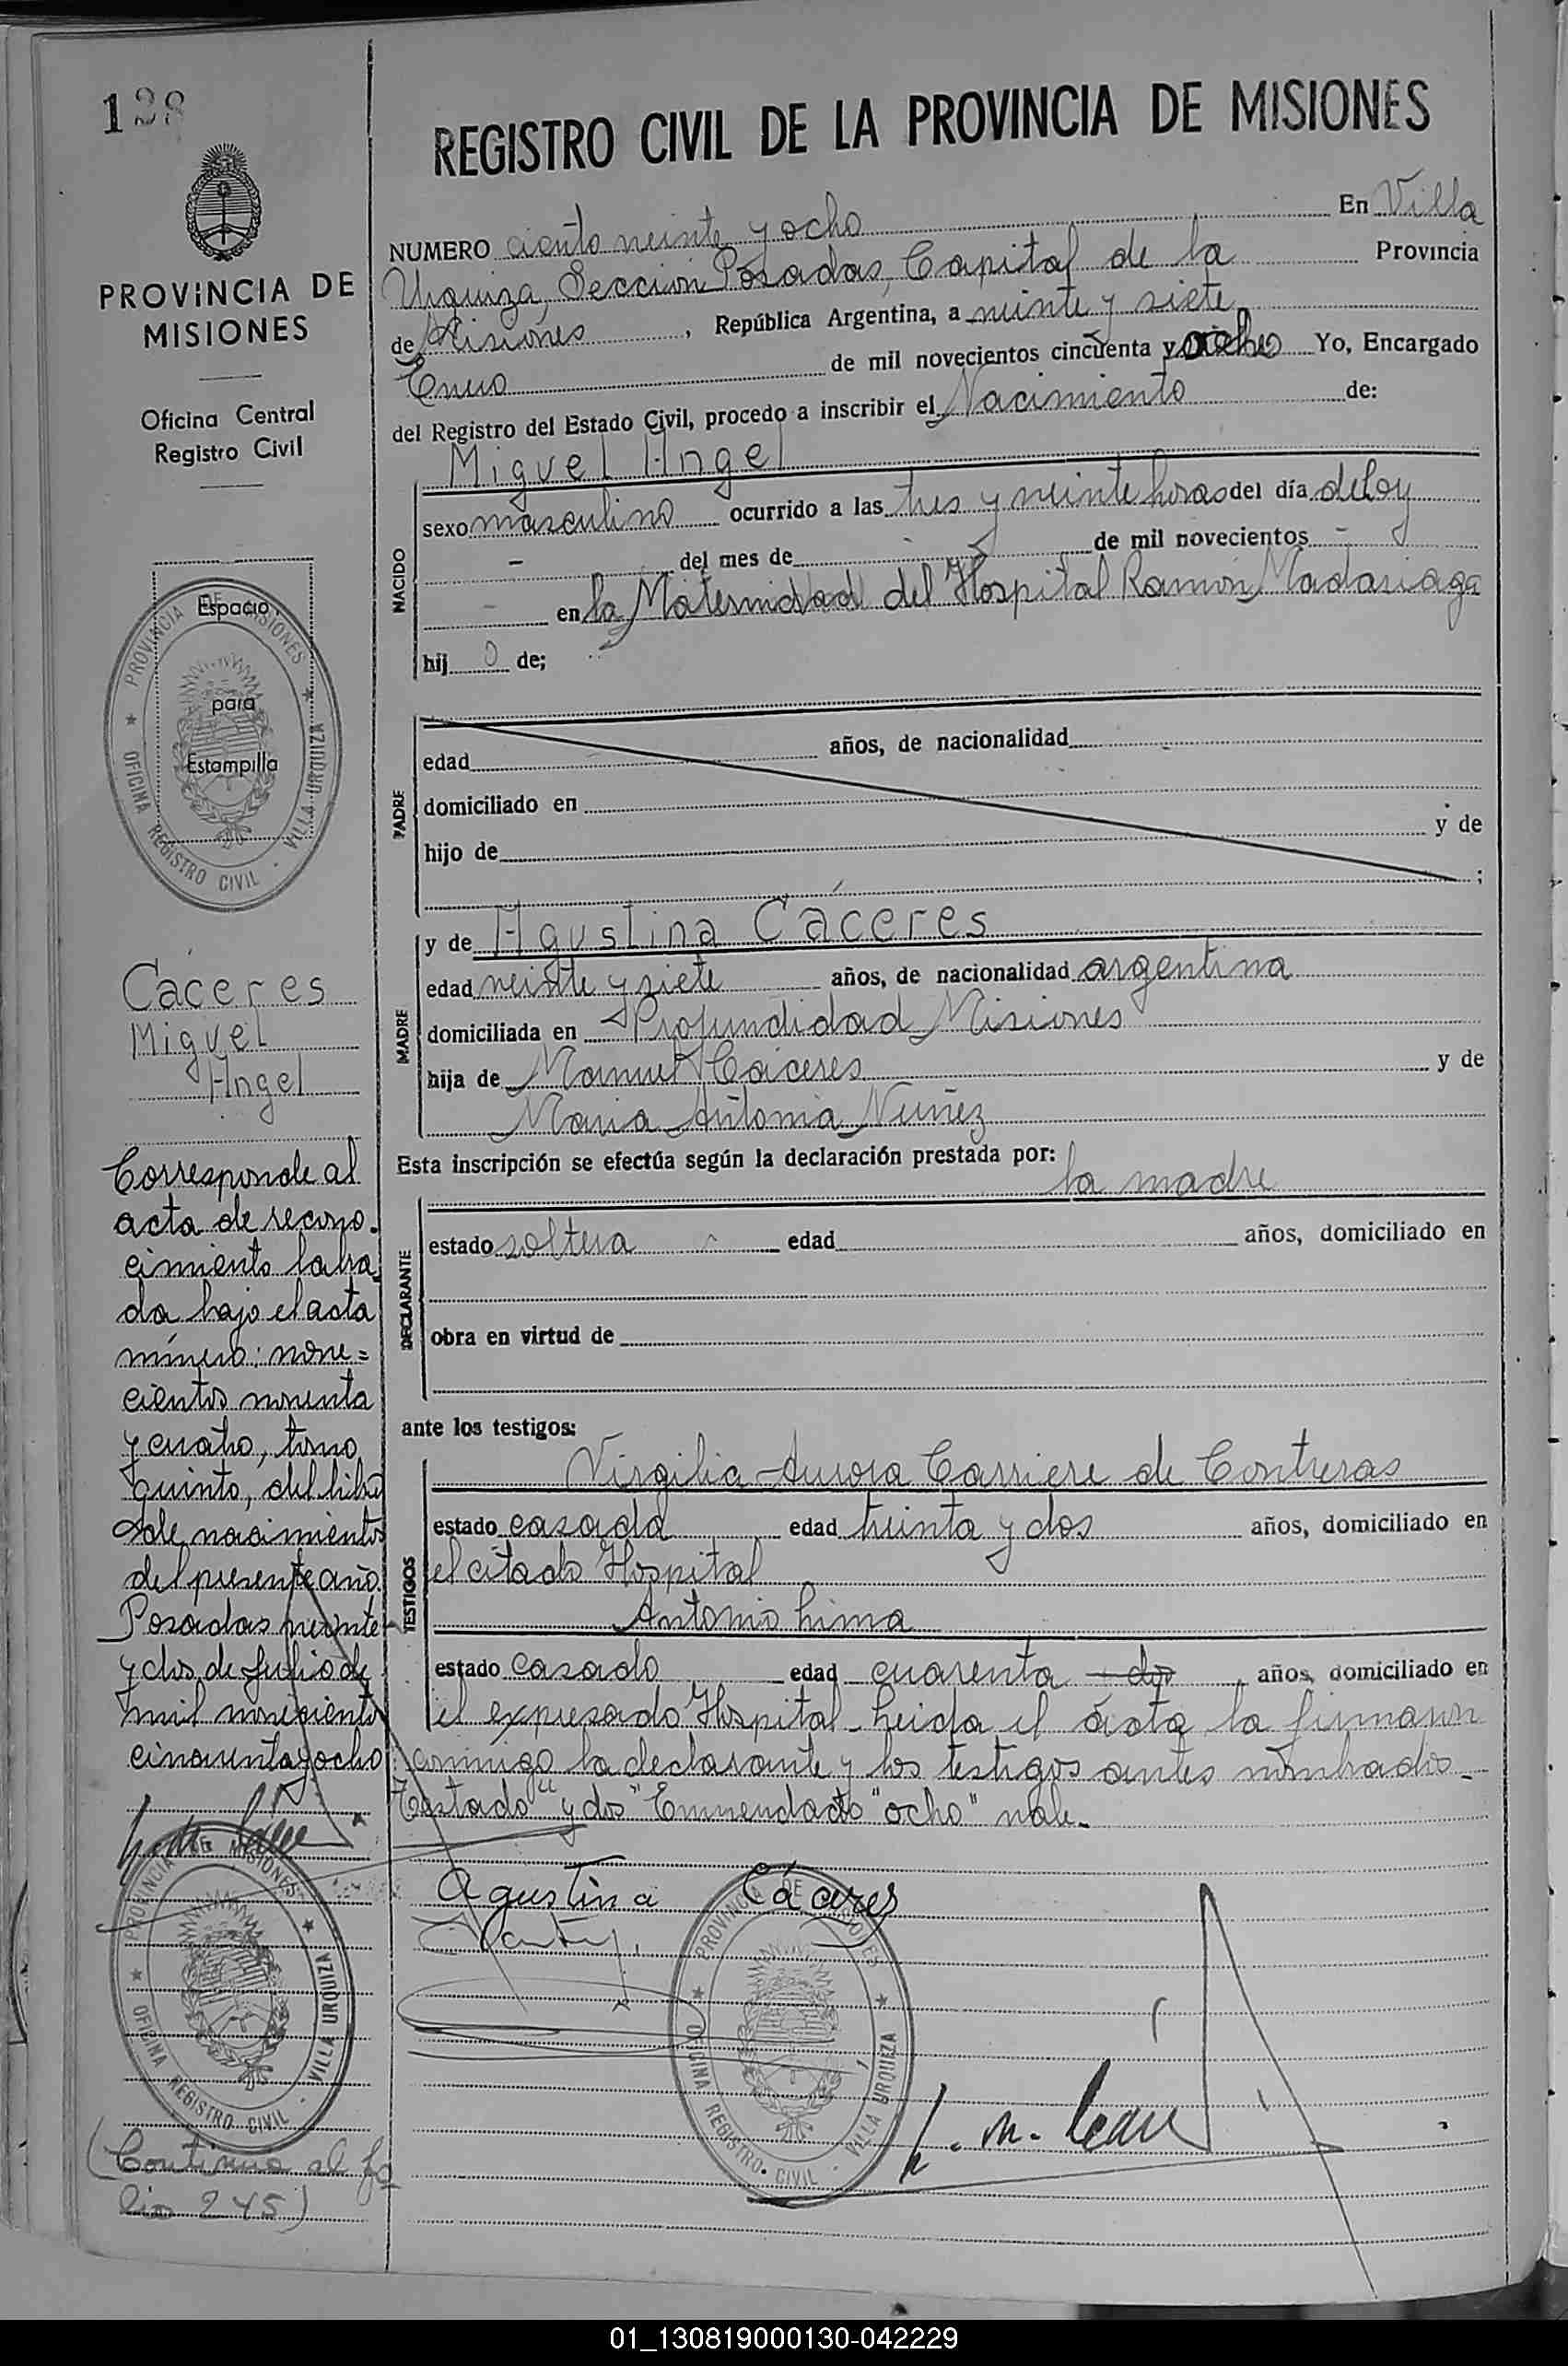 128
PROVINCIA DE
MISIONES
Oficina Central
Registro Civil
Espacio
para
Estampilla
PROVINCIA DE MISIONES
OFICINA REGISTRO CIVIL - VILLA URQUIZA
Cáceres
Miguel
Angel
Corresponde al
acta de recono-
cimiento labra
da bajo el acta
número: nove=
cientos noventa
y cuatro, tomo
quinto, del libro
de nacimientos
del presente año.
Posadas veinte
y dos de Julio de
mil novecientos
cincuenta y ocho
PROVINCIA DE MISIONES
OFICINA REGISTRO CIVIL - VILLA URQUIZA
(Continua al fo
lio 245)
REGISTRO CIVIL DE LA PROVINCIA DE MISIONES
NUMERO ciento veinte y ocho En Villa
Urquiza, Sección Posadas, Capital de la Provincia
de Misiones, República Argentina, a veinte y siete
Enero de mil novecientos cincuenta y ocho Yo, Encargado
del Registro del Estado Civil, procedo a inscribir el Nacimiento de:
Miguel Angel
NACIDO
sexo masculino ocurrido a las tres y veinte horas del día de hoy
- del mes de - de mil novecientos -
- en la Maternidad del Hospital Ramón Madariaga
hij o de;
PADRE
edad años, de nacionalidad
domiciliado en
hijo de y de
;
MADRE
y de Agustina Cáceres
edad veinte y siete años, de nacionalidad argentina
domiciliada en Profundidad Misiones
hija de Manuel Cáceres y de
Maria Antonia Nuñez
Esta inscripción se efectúa según la declaración prestada por: la madre
DECLARANTE
estado soltera edad años, domiciliado en
obra en virtud de
ante los testigos:
TESTIGOS
Virgilia Aurora Carriere de Contreras
estado casada edad treinta y dos años, domiciliado en
el citado Hospital
Antonio Lima
estado casado edad cuarenta y dos años, domiciliado en
el expresado Hospital - Leida el acta la firmaron
conmigo la declarante y los testigos antes nombrados -
Testado "y dos" Enmendado "ocho" vale.-
Agustina Cáceres
PROVINCIA DE MISIONES
OFICINA REGISTRO CIVIL - VILLA URQUIZA
01_130819000130-042229